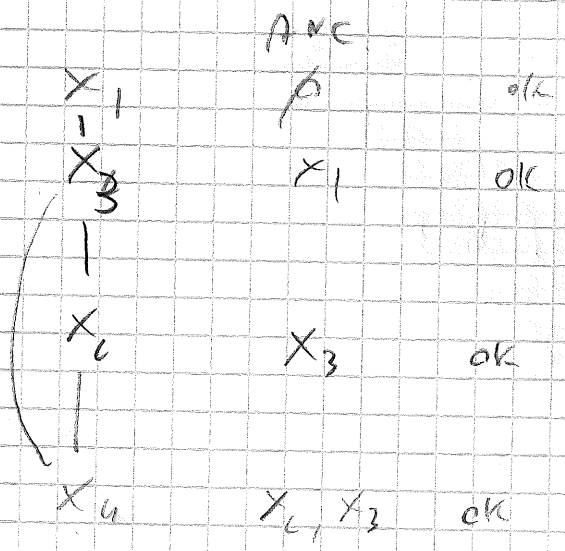 ANC
X1 ∅ ok
X3 X1 ok
X2 X3 ok
X4 X2, X3 ok